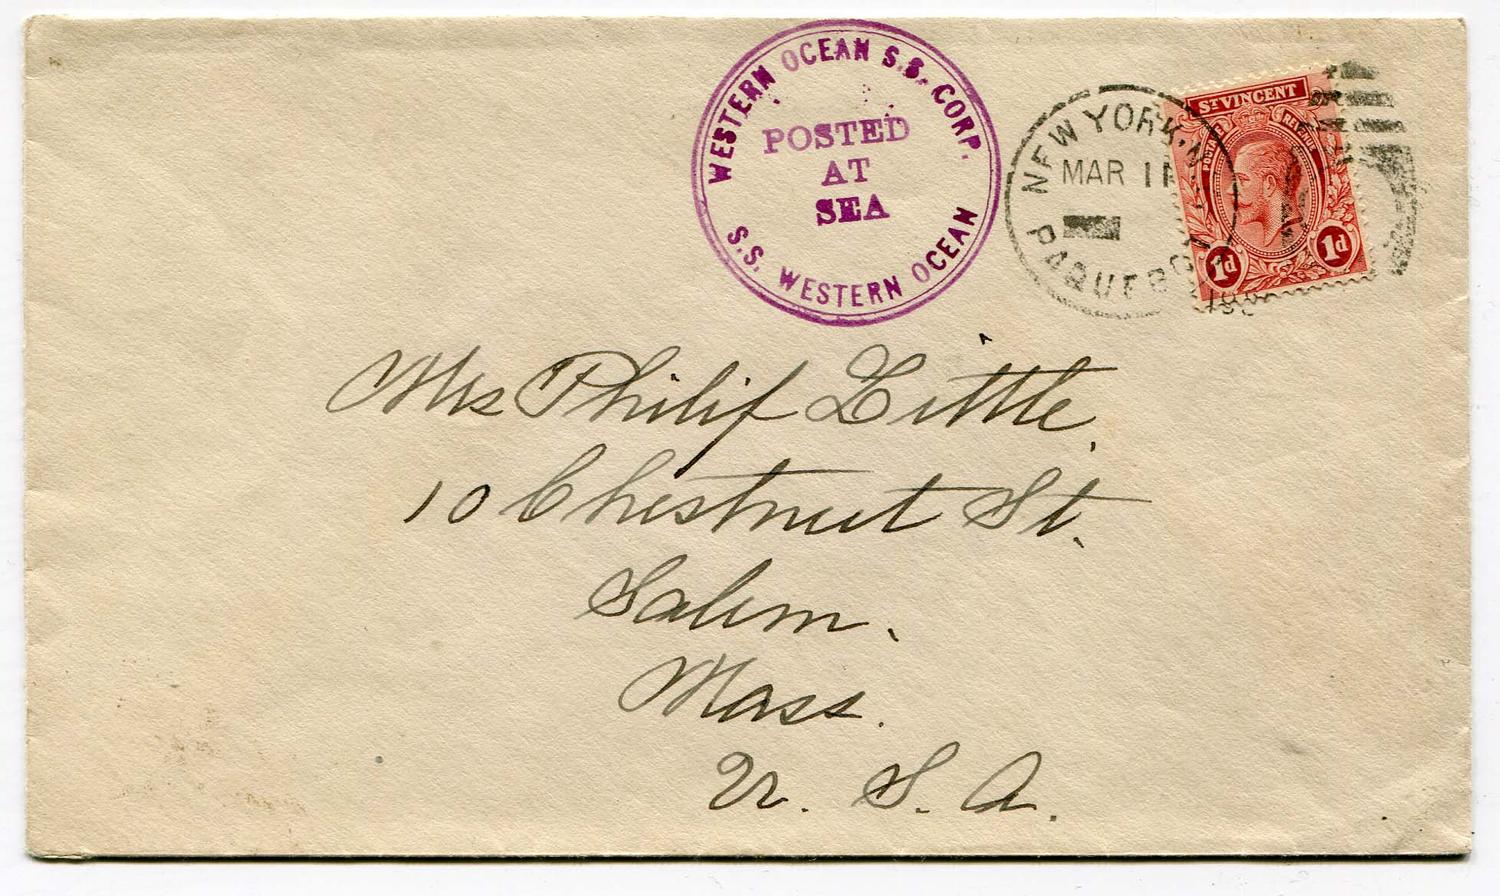 WESTERN OCEAN S.S. CORP.
POSTED
AT
SEA
S.S. WESTERN OCEAN
NEW YORK, N.Y.
MAR 11
PAQUEBOT
ST VINCENT
POSTAGE REVENUE
1d 1d
Mrs Philip Little,
10 Chestnut St.
Salem.
Mass.
U. S. A.